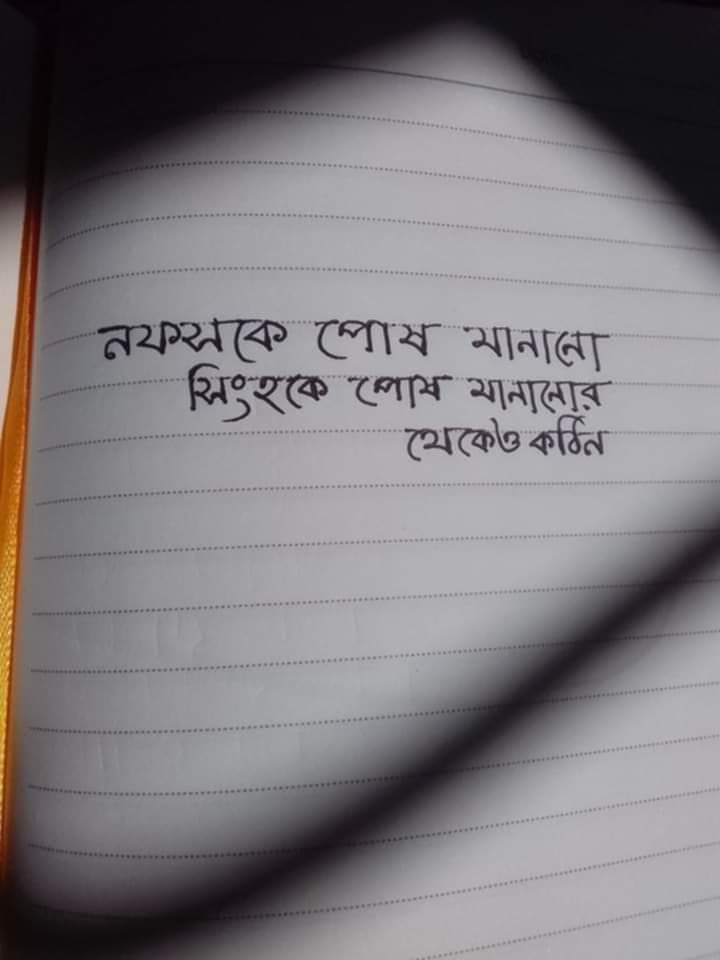 নফসকে পোষ মানানো
সিংহকে পোষ মানানোর
থেকেও কঠিন